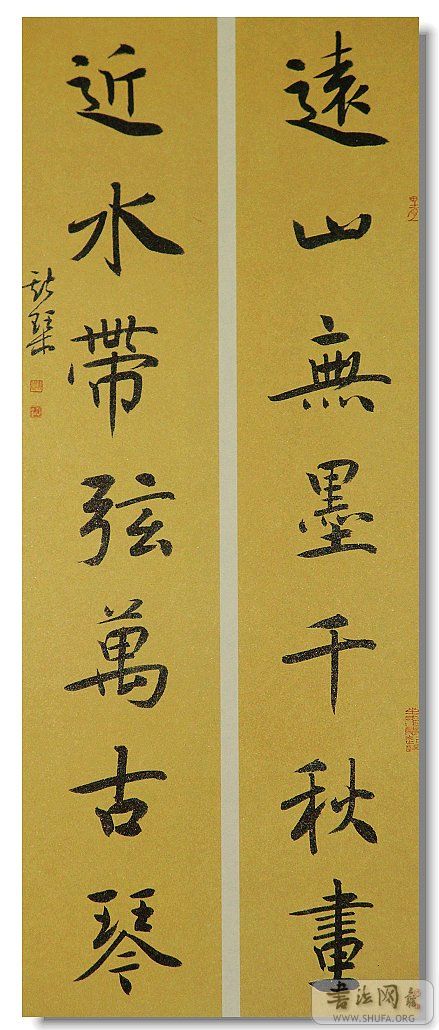 遠山無墨千秋畫
近水帶弦萬古琴
書法网
WWW.SHUFA.ORG